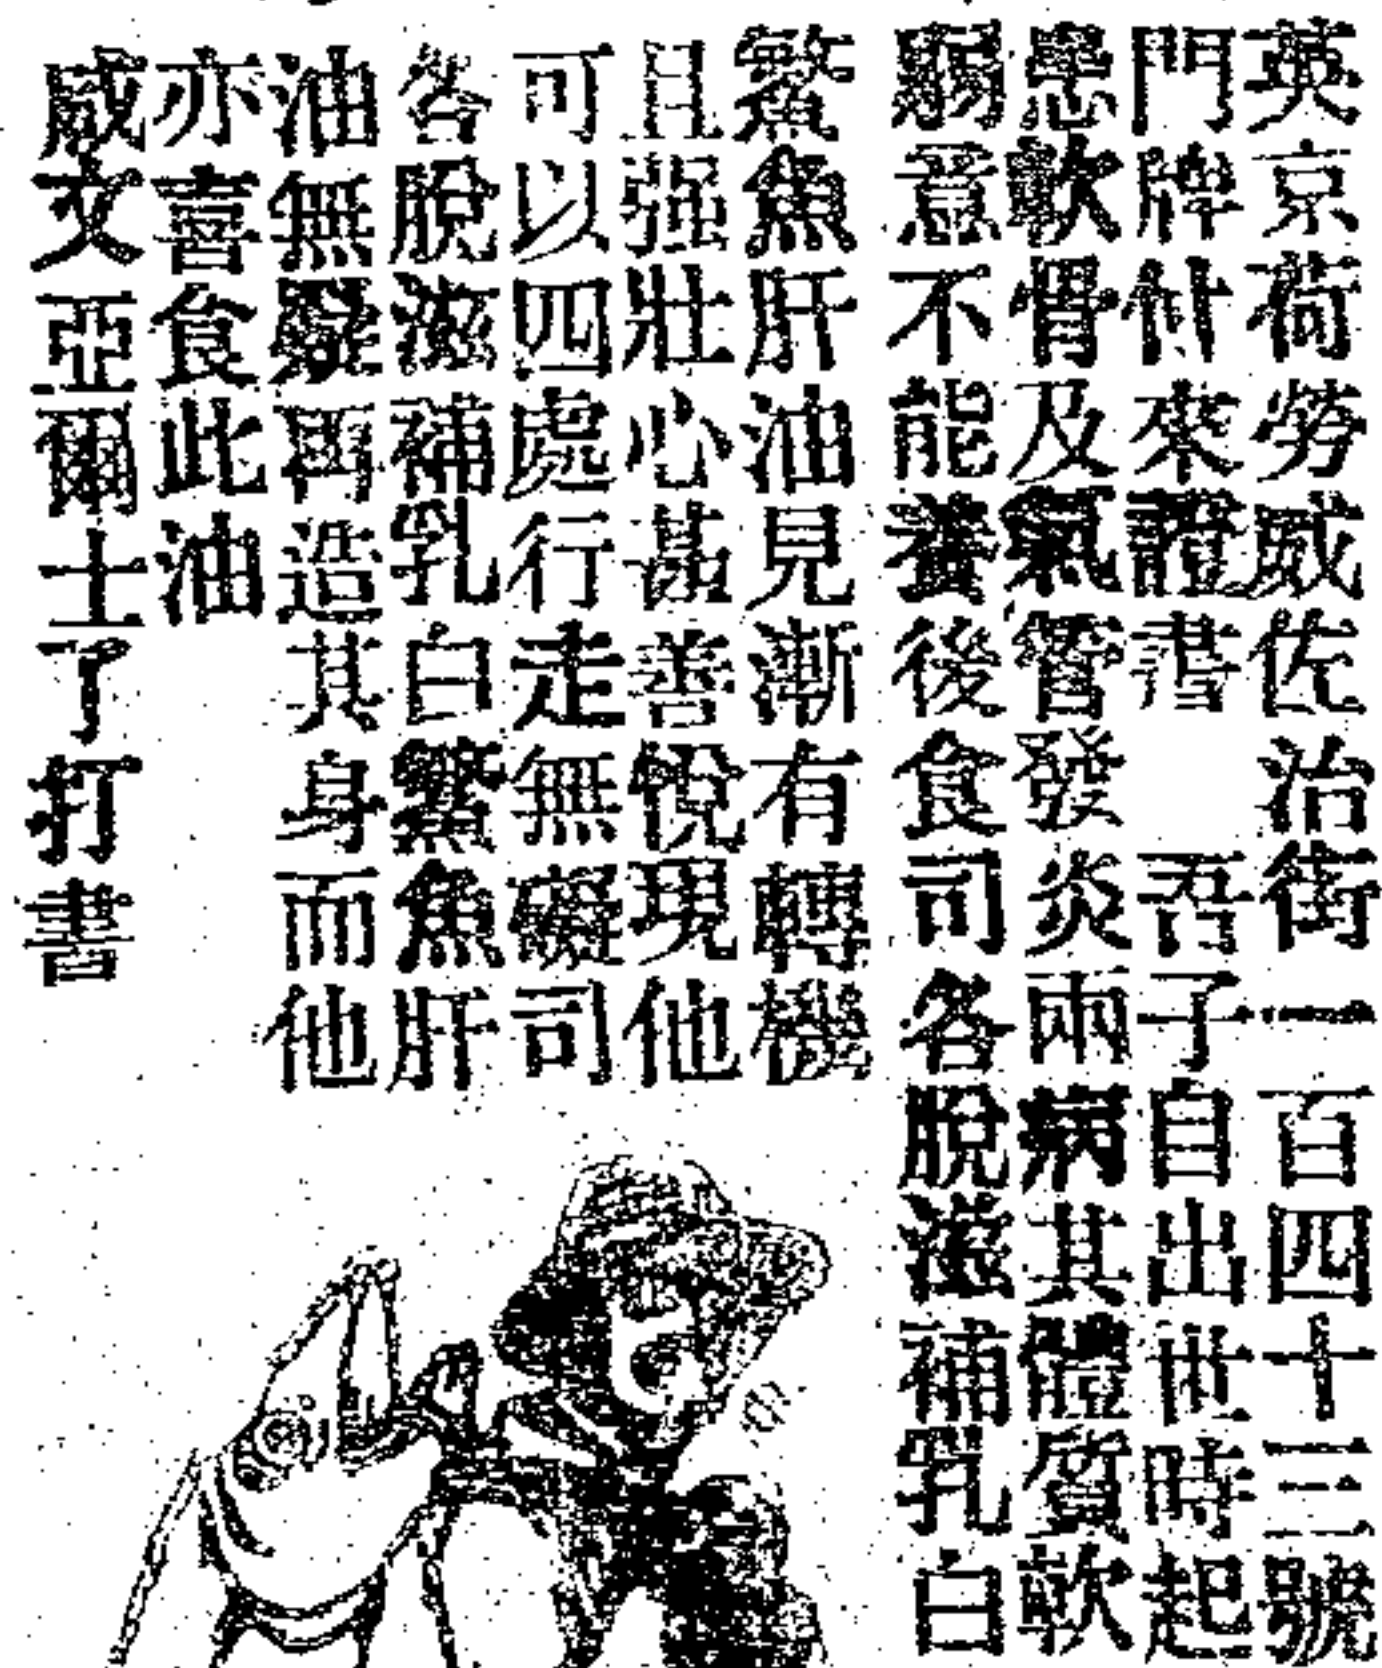 英京荷勞威佐治街一百四十三號
門牌付來證書　吾子自出世時起
患軟骨及氣管發炎兩病其體質軟
弱意不能養後食司各脫滋補乳白
鰵魚肝油見漸有轉機
且强壯心甚善悅現他
可以四處行走無礙司
各脫滋補乳白鰵魚肝
油無疑再造其身而他
亦喜食此油
威文亞爾士了打書